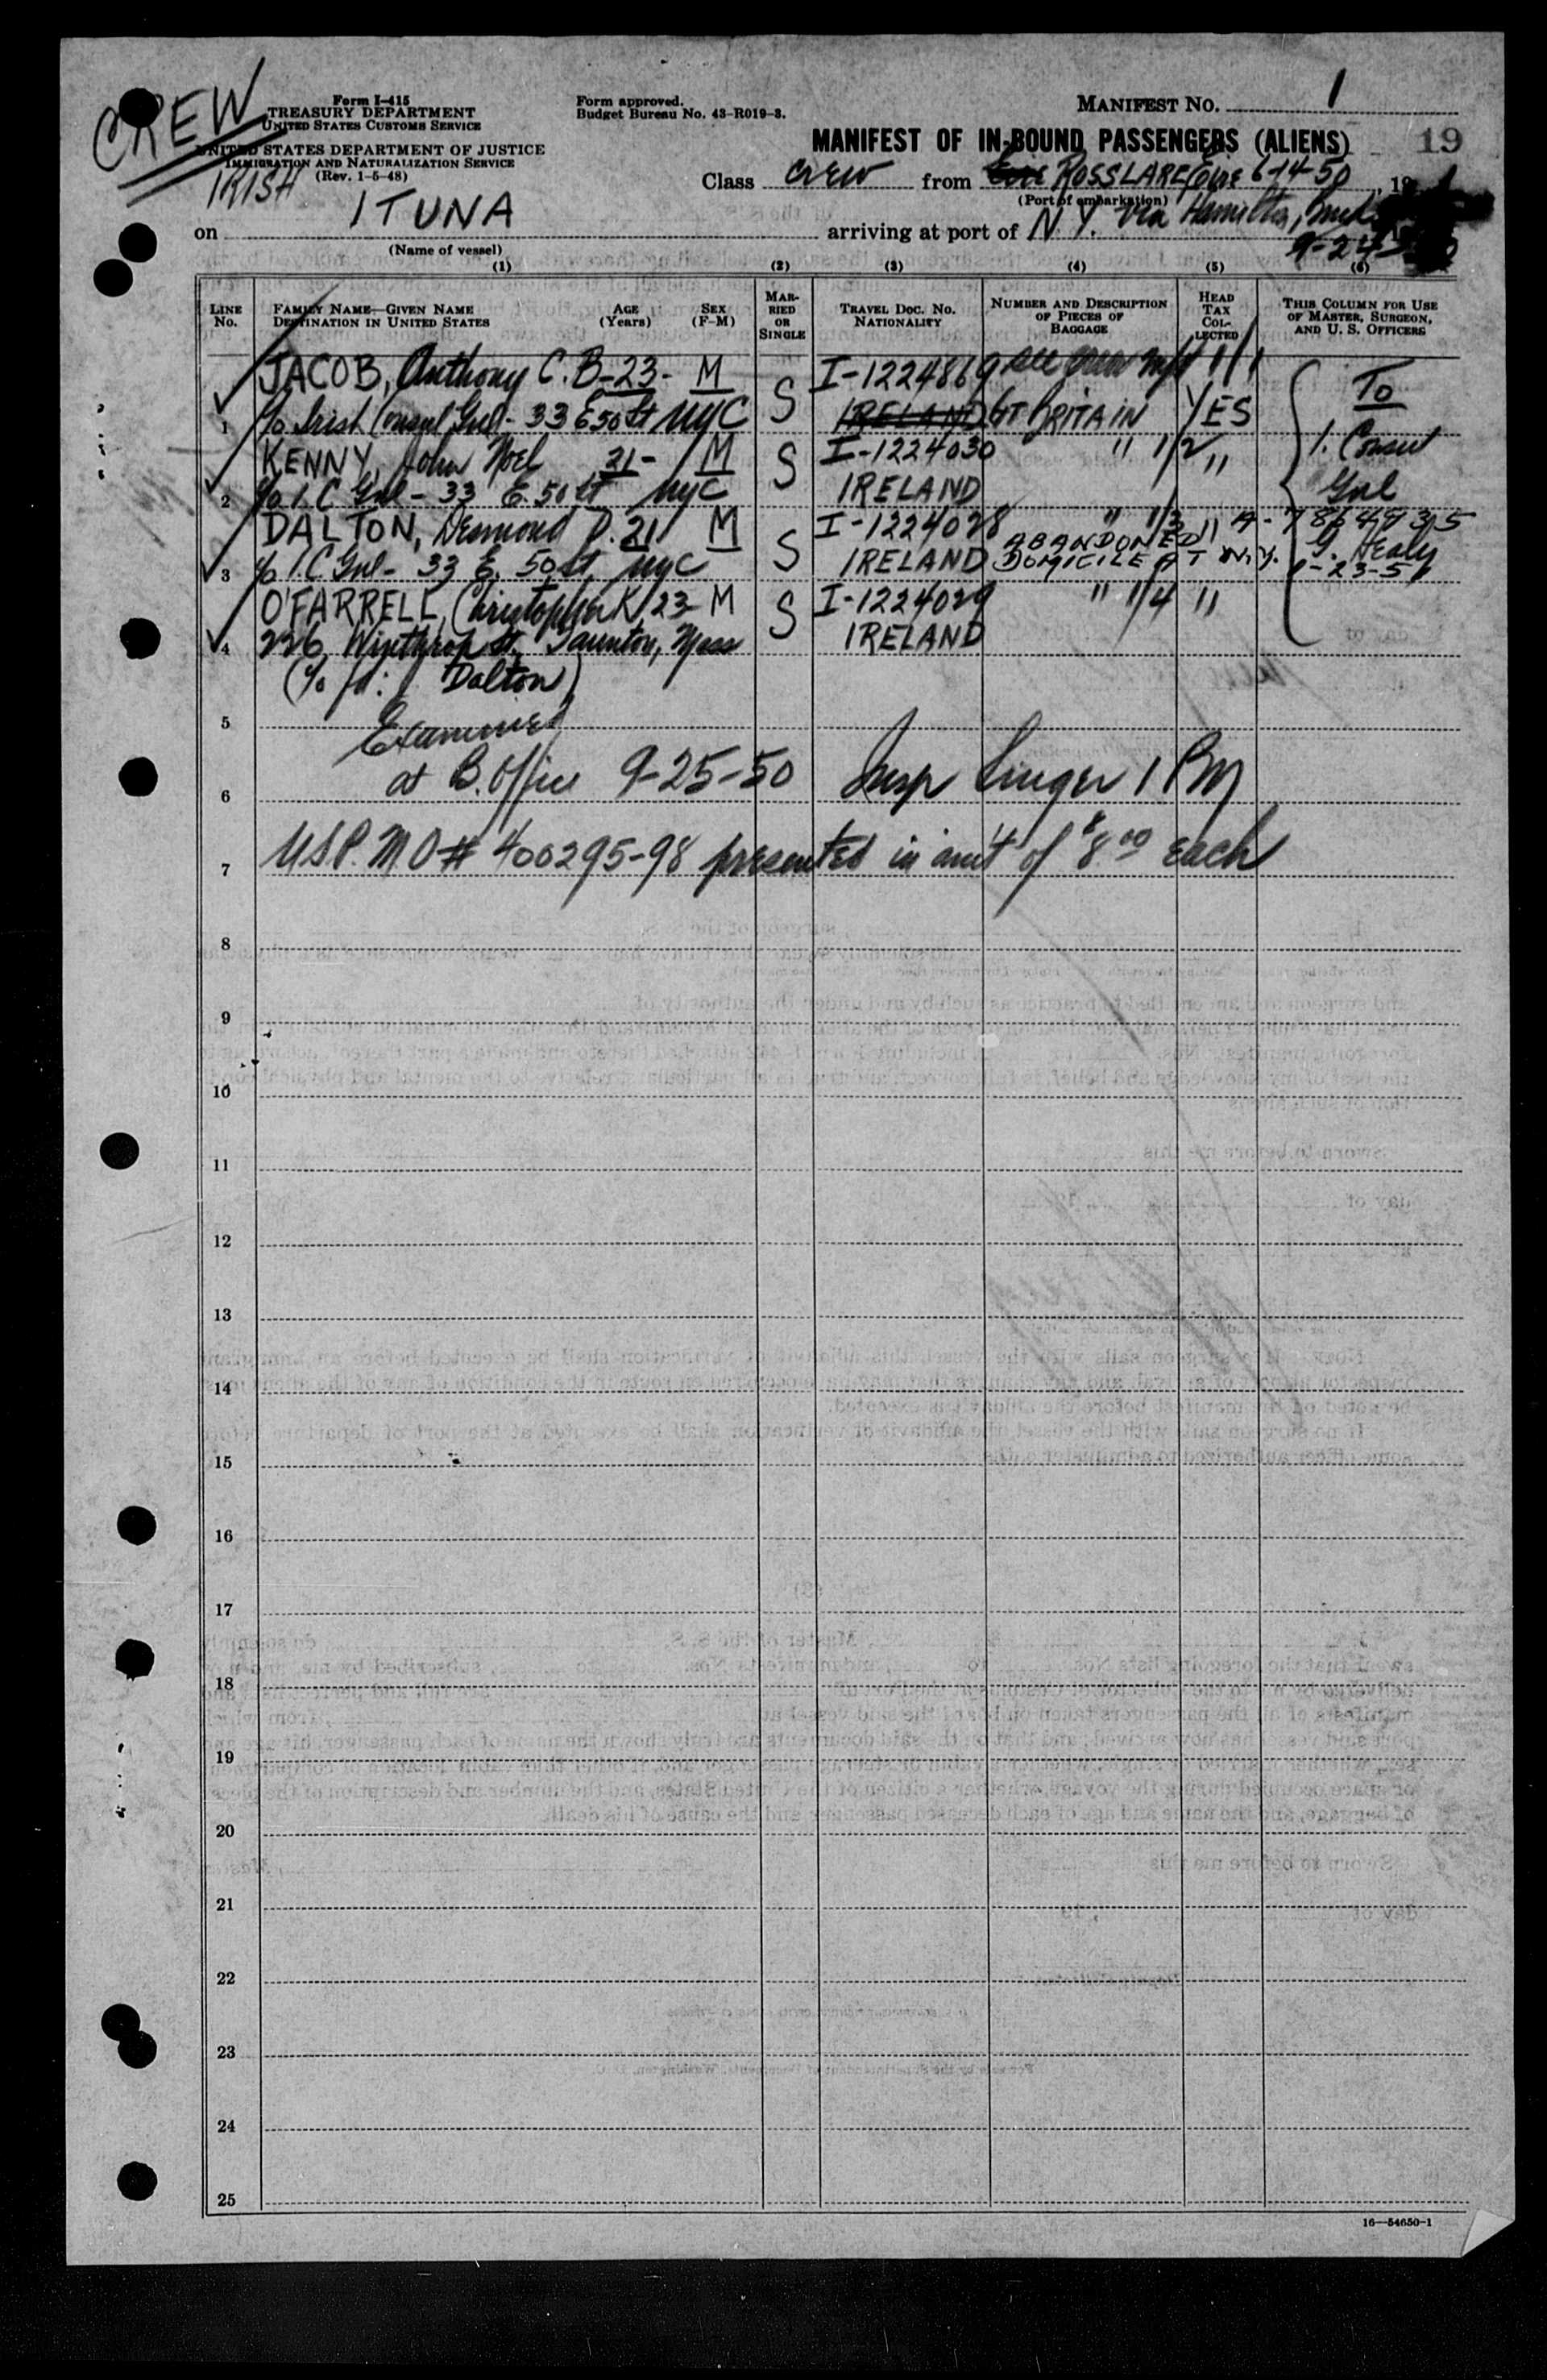 CREW
Form I-415
TREASURY DEPARTMENT
UNITED STATES CUSTOMS SERVICE
UNITED STATES DEPARTMENT OF JUSTICE
IMMIGRATION AND NATURALIZATION SERVICE
(Rev. 1-5-48)
IRISH
Form approved.
Budget Bureau No. 43-R019-3.
MANIFEST No. 1
MANIFEST OF IN-BOUND PASSENGERS (ALIENS) 19
Class Crew from Eire ROSSLARE, Eire 6-14-50, 19
(Port of embarkation)
on ITUNA arriving at port of N.Y. via Hamilton,
(Name of vessel)
9-24-
(1) (2) (3) (4) (5) (6)
LINE No.
FAMILY NAME—GIVEN NAME
DESTINATION IN UNITED STATES
AGE (Years)
SEX (F-M)
MARRIED OR SINGLE
TRAVEL DOC. NO.
NATIONALITY
NUMBER AND DESCRIPTION OF PIECES OF BAGGAGE
HEAD TAX COLLECTED
THIS COLUMN FOR USE OF MASTER, SURGEON, AND U. S. OFFICERS
JACOB, Anthony C. B-23- M S I-1224869 See Crew 1
1 c/o Irish Consul Gnl- 33 E 50 St NYC IRELAND GT BRITAIN YES
To
KENNY, John Noel 21- M S I-1224030 " " 2 "
I. Consul
2 c/o I.C Gnl- 33 E. 50 St NYC IRELAND
Gnl
DALTON, Desmond P. 21 M S I-1224028 " " 3 " A-7864935
3 c/o I.C Gnl- 33 E. 50 St NYC IRELAND ABANDONED DOMICILE AT N.Y. G. Healy
-23-51
O'FARRELL, Christopher K 23- M S I-1224029 " " 4 "
4 226 Winthrop St. Taunton, Mass IRELAND
(c/o fd: Dalton)
5 Examined
6 at B. Office 9-25-50 Insp Singer 1 PM
7 USP. MO# 400295-98 presented in amt of $8.00 each
8
9
10
11
12
13
14
15
16
17
18
19
20
21
22
23
24
25
16—54650-1